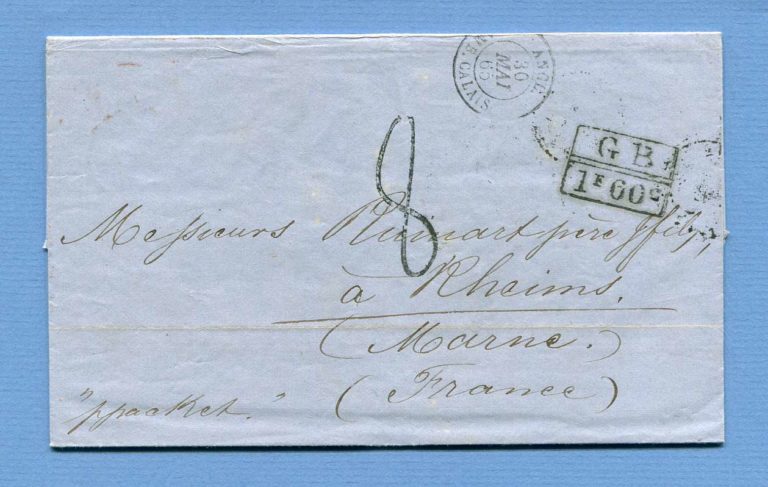 ANGL.
AMB. CALAIS
30
MAI
65
8
G B
1F 60c
Messieurs Ruinart père & fils,
à Rheims.
(Marne.)
(France)
"ppacket."